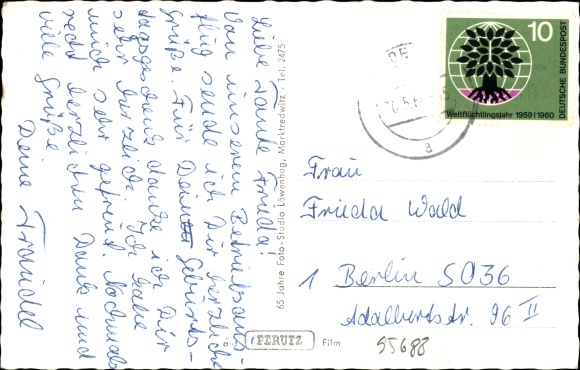 Liebe Tante Frieda!
Von unserem Betriebsaus-
flug sende ich Dir herzliche
Grüße. Für Dein Geburts-
tagsgeschenk danke ich Dir
sehr herzlich. Ich habe
mich sehr gefreut. Nochmals
recht herzlichen Dank und
viele Grüße
Deine Traudel
65 Jahre Foto-Studio Löwenhag, Marktredwitz · Tel. 2475
PERUTZ Film
10
DEUTSCHE BUNDESPOST
Weltflüchtlingsjahr 1959 | 1960
a
Frau
Frieda Wald
1 Berlin SO36
Adalbertstr. 96 II
95688